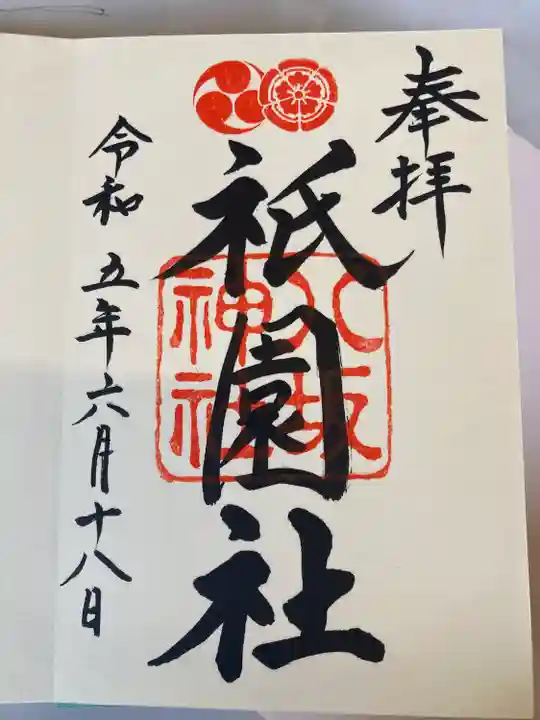 奉拝
祇園社
八坂
神社
令和五年六月十八日